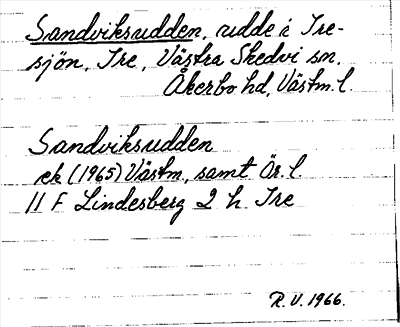 Sandviksudden, udde i Tre-
sjön, Tre, Västra Skedvi sn.
Åkerbo hd, Västm. l.
Sandviksudden
ek (1965) Västm., samt Ör. l.
11 F Lindesberg 2 h Tre
R. V. 1966.